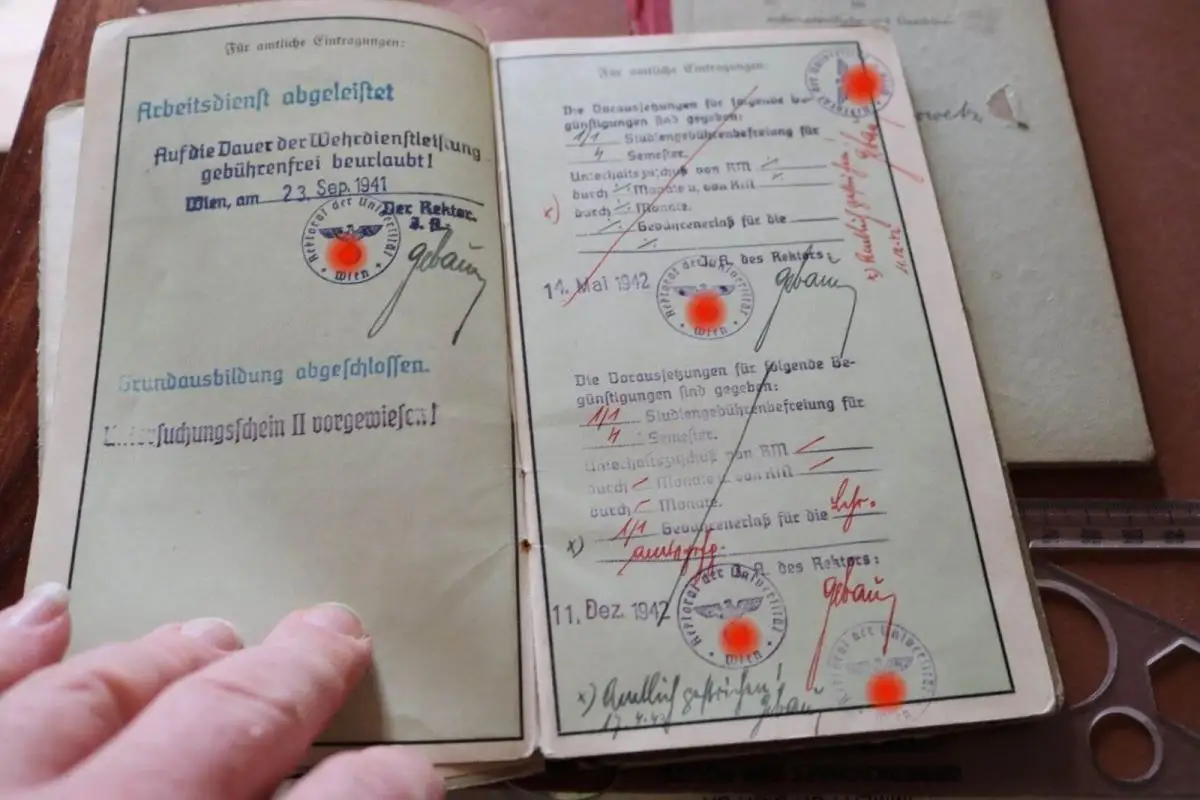 Für amtliche Eintragungen:
Arbeitsdienst abgeleistet
Auf die Dauer der Wehrdienstleistung
gebührenfrei beurlaubt!
Wien, am 23. Sep. 1941
Der Rektor.
I. A.
Rektorat der Universität
Wien
Gebaur
Grundausbildung abgeschlossen.
Untersuchungsschein II vorgewiesen!
Für amtliche Eintragungen:
Die Voraussetzungen für folgende Be-
günstigungen sind gegeben:
1/1 Studiengebührenbefreiung für
4 Semester.
Unterhaltszuschuß von RM
durch Monate u. von RM
x) durch Monate.
Gebührenerlaß für die
I. A. des Rektors:
14. Mai 1942
Rektorat der Universität
Wien
Gebaur
x) Amtlich gestrichen! Gebaur
11.12.42
Die Voraussetzungen für folgende Be-
günstigungen sind gegeben:
1/1 Studiengebührenbefreiung für
4 Semester.
Unterhaltszuschuß von RM
durch Monate u. von RM
durch Monate.
x) 1/1 Gebührenerlaß für die Lehr-
amtsprfg.
I. A. des Rektors:
11. Dez. 1942
Rektorat der Universität
Wien
Gebaur
x) Amtlich gestrichen!
17.4.43 Gebaur
Rektorat der Universität
Wien